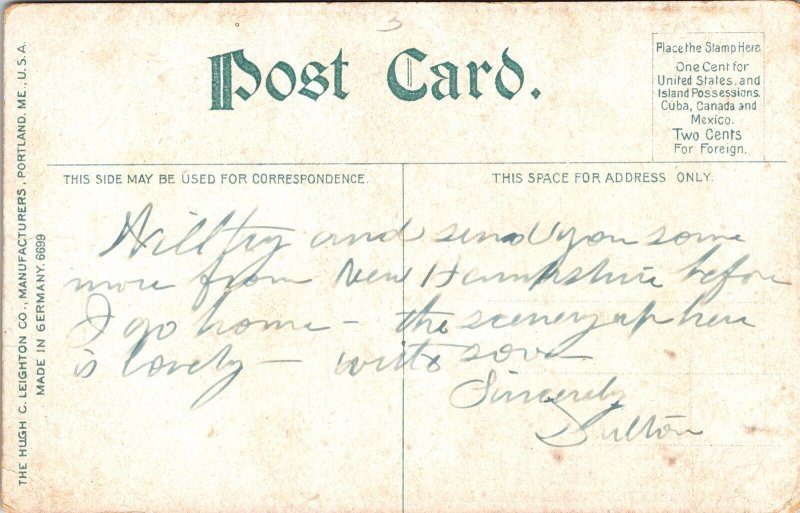 3
Post Card.
Place the Stamp Here
One Cent for
United States, and
Island Possessions,
Cuba, Canada and
Mexico.
Two Cents
For Foreign.
THIS SIDE MAY BE USED FOR CORRESPONDENCE.
THIS SPACE FOR ADDRESS ONLY.
Will try and send you some
more from New Hampshire before
I go home - the scenery up here
is lovely - write soon
Sincerely
THE HUGH C. LEIGHTON CO., MANUFACTURERS, PORTLAND, ME., U.S.A.
MADE IN GERMANY. 6699